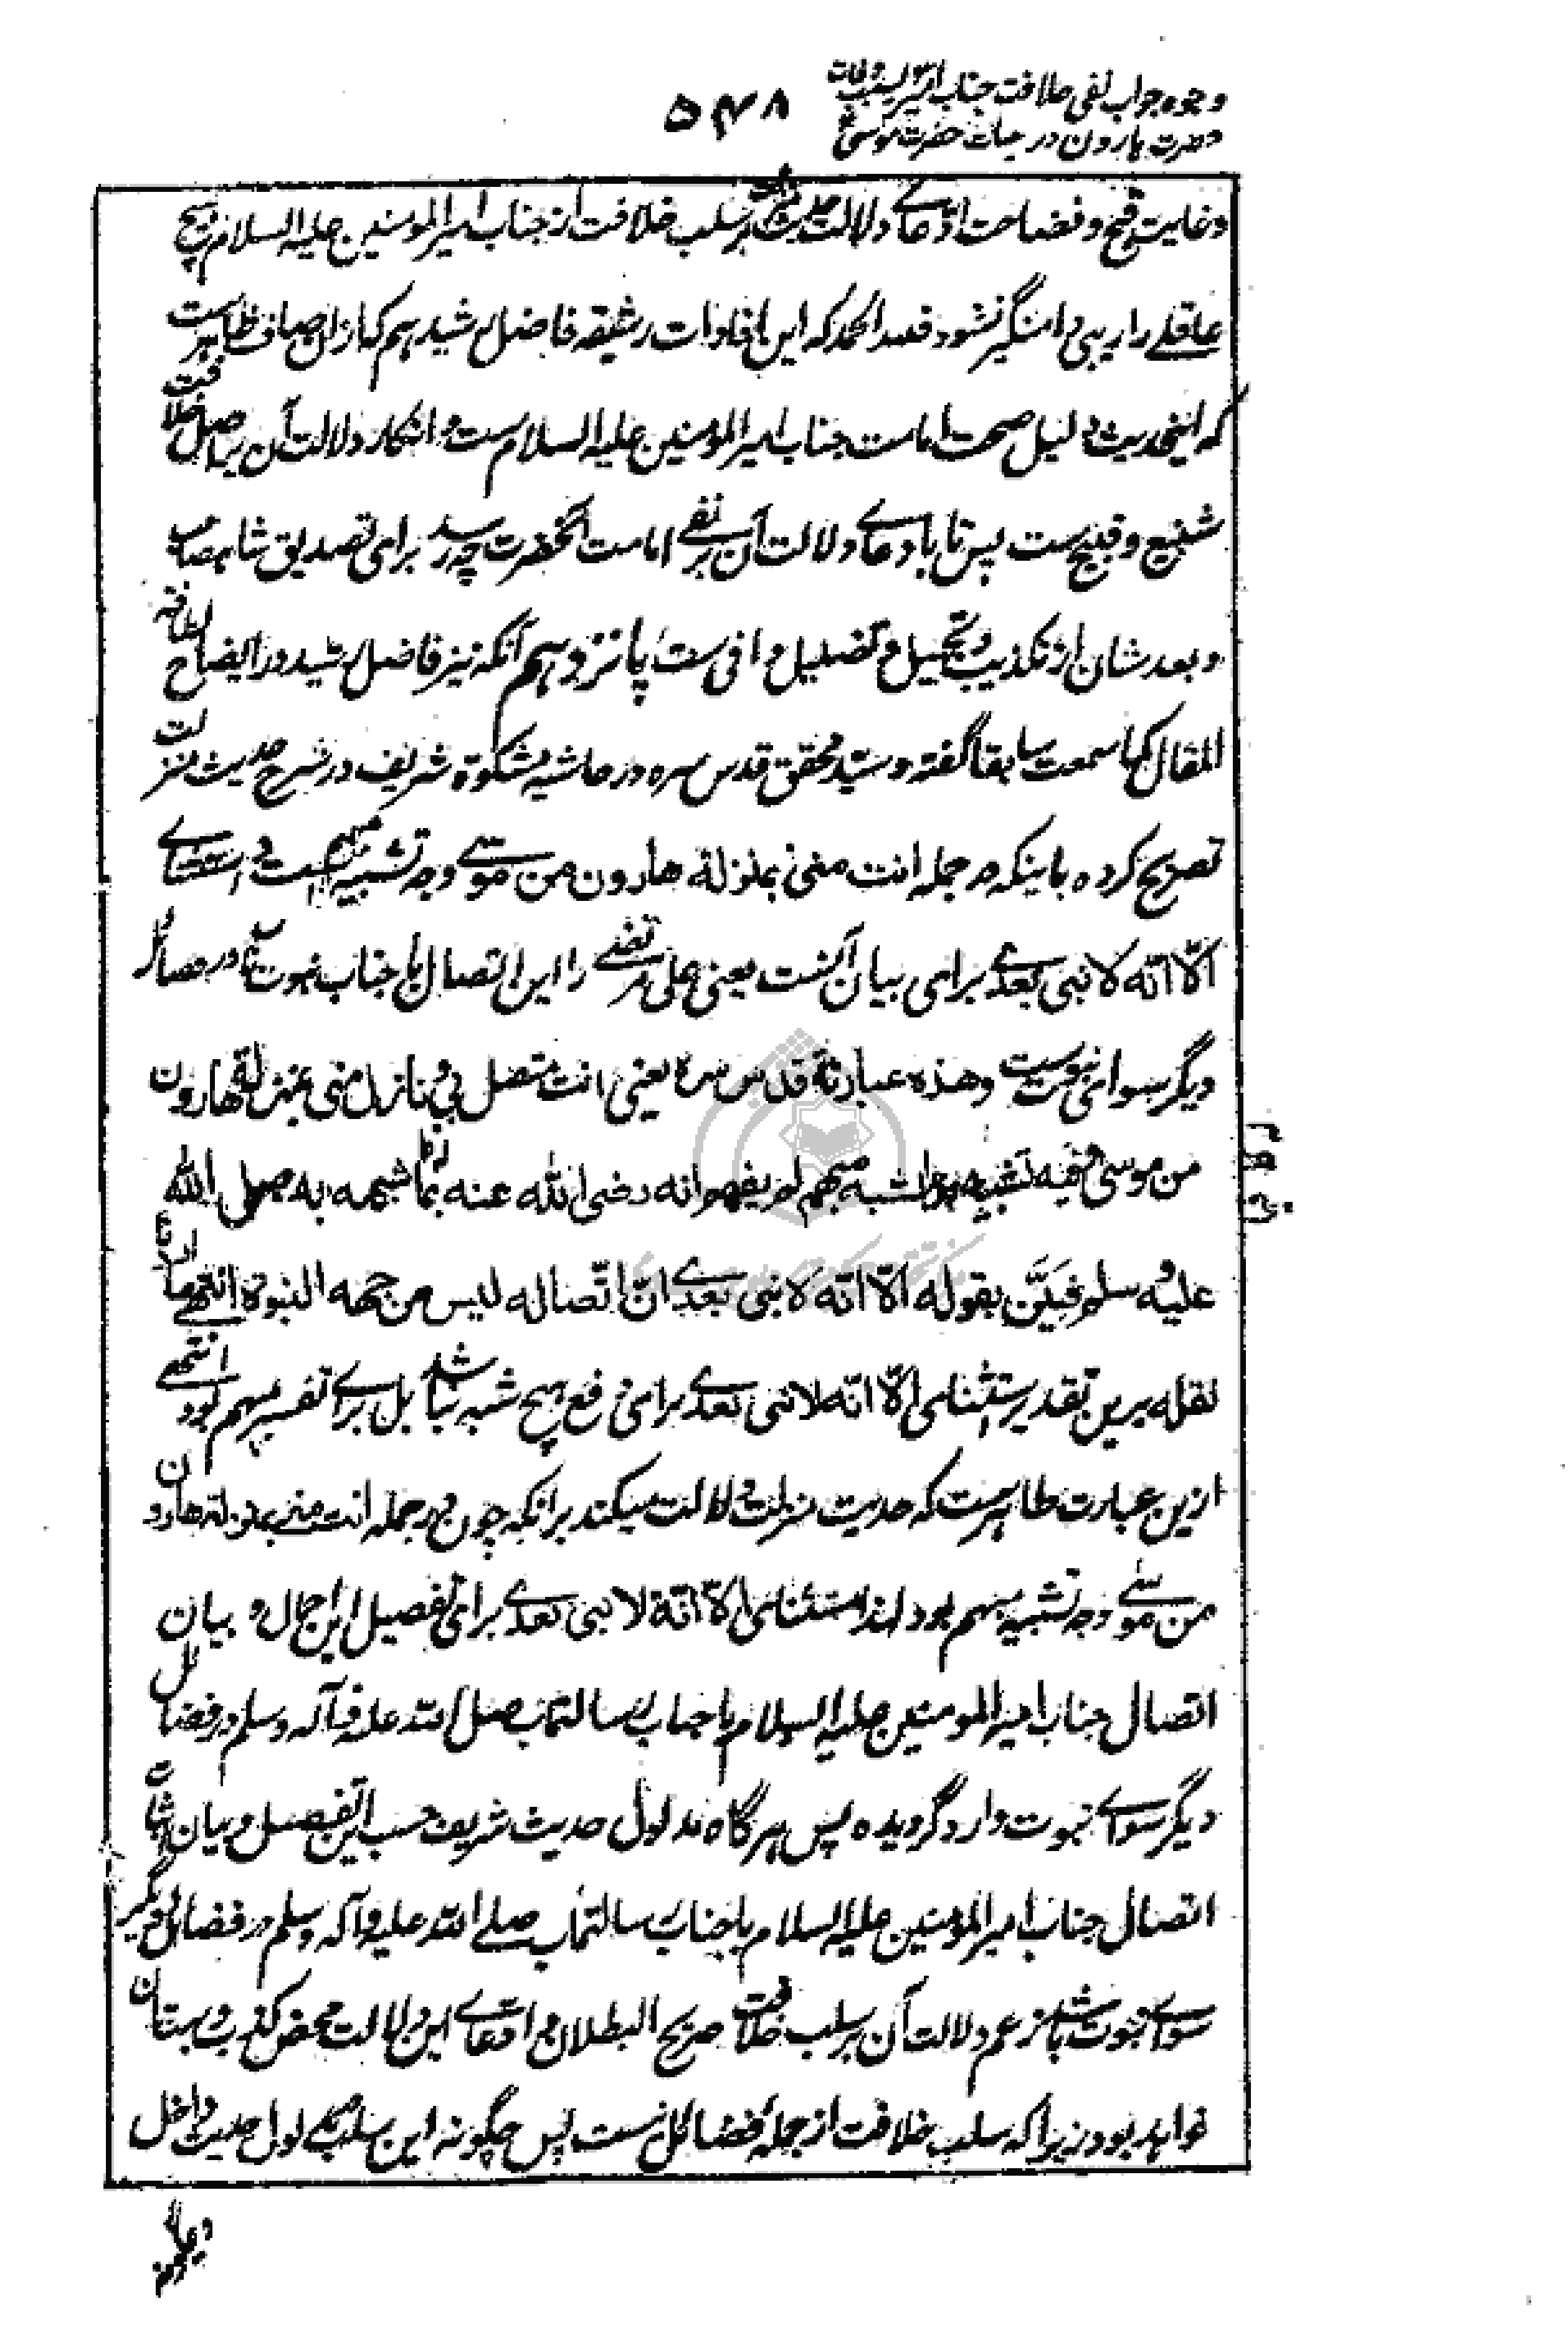 وجوه جواب نفی خلافت جناب امیر
۵۴۸
حضرت هارون در حیات حضرت موسی
و غایت قبح و فضاحت ادّعای دلالت حدیث منزلت بر سلب خلافت از جناب امیرالمومنین علیه السلام هیچ
عاقلی را ریبی دامنگیر نشود فلله الحمد که این افادات رشیقه فاضل رشید هم که ازان صاف ظاهرست
که اینحدیث دلیل صحت امامت جناب امیرالمومنین علیه السلام ست و انکار دلالت آن بر اصل خلافت
شنیع و قبیح ست پس تا بادعای دلالت آن بر نفی امامت آنحضرت چه رسد برای تصدیق شاهصاحب
و بعد شان از تکذیب و تجهیل و تضلیل وافی ست پانزدهم آنکه نیز فاضل رشید در ایضاح لطافة
المقال کما سمعت سابقا گفته و سید محقق قدس سره در حاشیه مشکوة شریف در شرح حدیث منزلت
تصریح کرده باینکه در جمله انت منی بمنزلة هارون من موسی وجه تشبیه مبهم ست و استثنای
الّا انّه لا نبی بعدی برای بیان آنست یعنی علی مرتضی را این اتصال با جناب نبوت مآب در فضائل
دیگر سوای نبوت ست وهذه عبارته قدس سره یعنی انت متصل بی و نازل منی بمنزلة هارون
من موسی ففیه تشبیه ووجه الشبه مبهم لم یفهم انه رضی الله عنه بما شبهه به صلی الله
علیه و سلم فبیّن بقوله الّا انّه لا نبی بعدی انّ اتّصاله لیس من جهة النبوة انتهی ما
نقله برین تقدیر استثنای الّا انّه لا نبی بعدی برای رفع هیچ شبه نباشد بل برای تفسیر مبهم بود انتهی
ازین عبارت ظاهرست که حدیث منزلت دلالت میکند برانکه چون در جمله انت منی بمنزلة هارون
من موسی وجه تشبیه مبهم بود لهذا استثنای الّا انّه لا نبی بعدی برای تفصیل این اجمال و بیان
اتصال جناب امیرالمومنین علیه السلام با جناب رسالتمآب صلی الله علیه و آله و سلم در فضائل
دیگر سوای نبوت وارد گردیده پس هرگاه مدلول حدیث شریف حسب این تفصیل و بیان اثبات
اتصال جناب امیرالمومنین علیه السلام با جناب رسالتمآب صلی الله علیه و آله و سلم در فضائل دیگر
سوای نبوت باشد زعم دلالت آن بر سلب خلافت صریح البطلان و ادّعای این دلالت محض کذب و بهتان
خواهد بود زیرا که سلب خلافت از جمله فضائل نیست پس چگونه این سلب در مدلول حدیث داخل